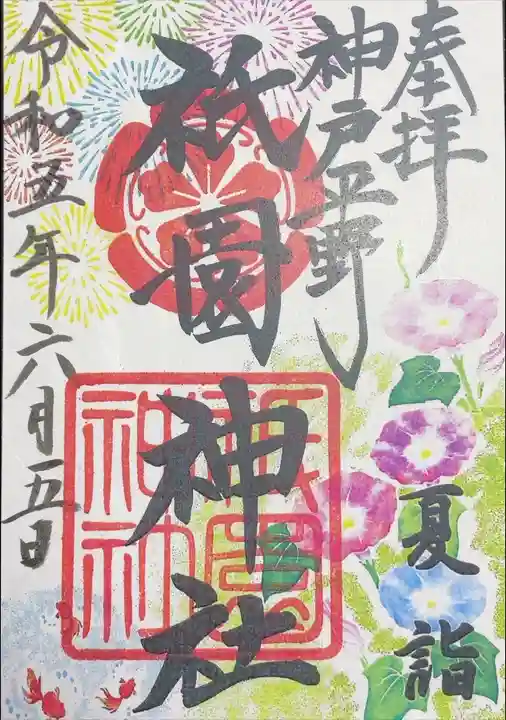 奉拝
夏詣
神戸平野
祇園神社
祇園
神社
令和五年六月五日